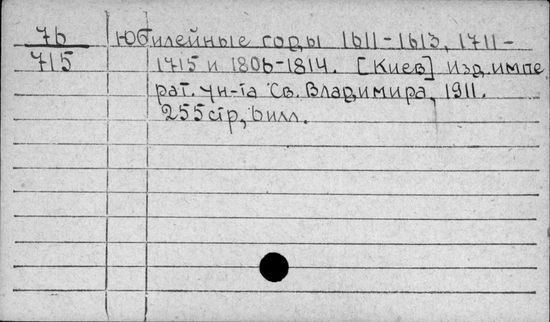 76 Юбилейные годы 1611-1613, 1711-
715 1715 и 1806-1814. [Киев] изд. импе
рат. ун-та Св. Владимира, 1911.
255 стр, 6 илл.